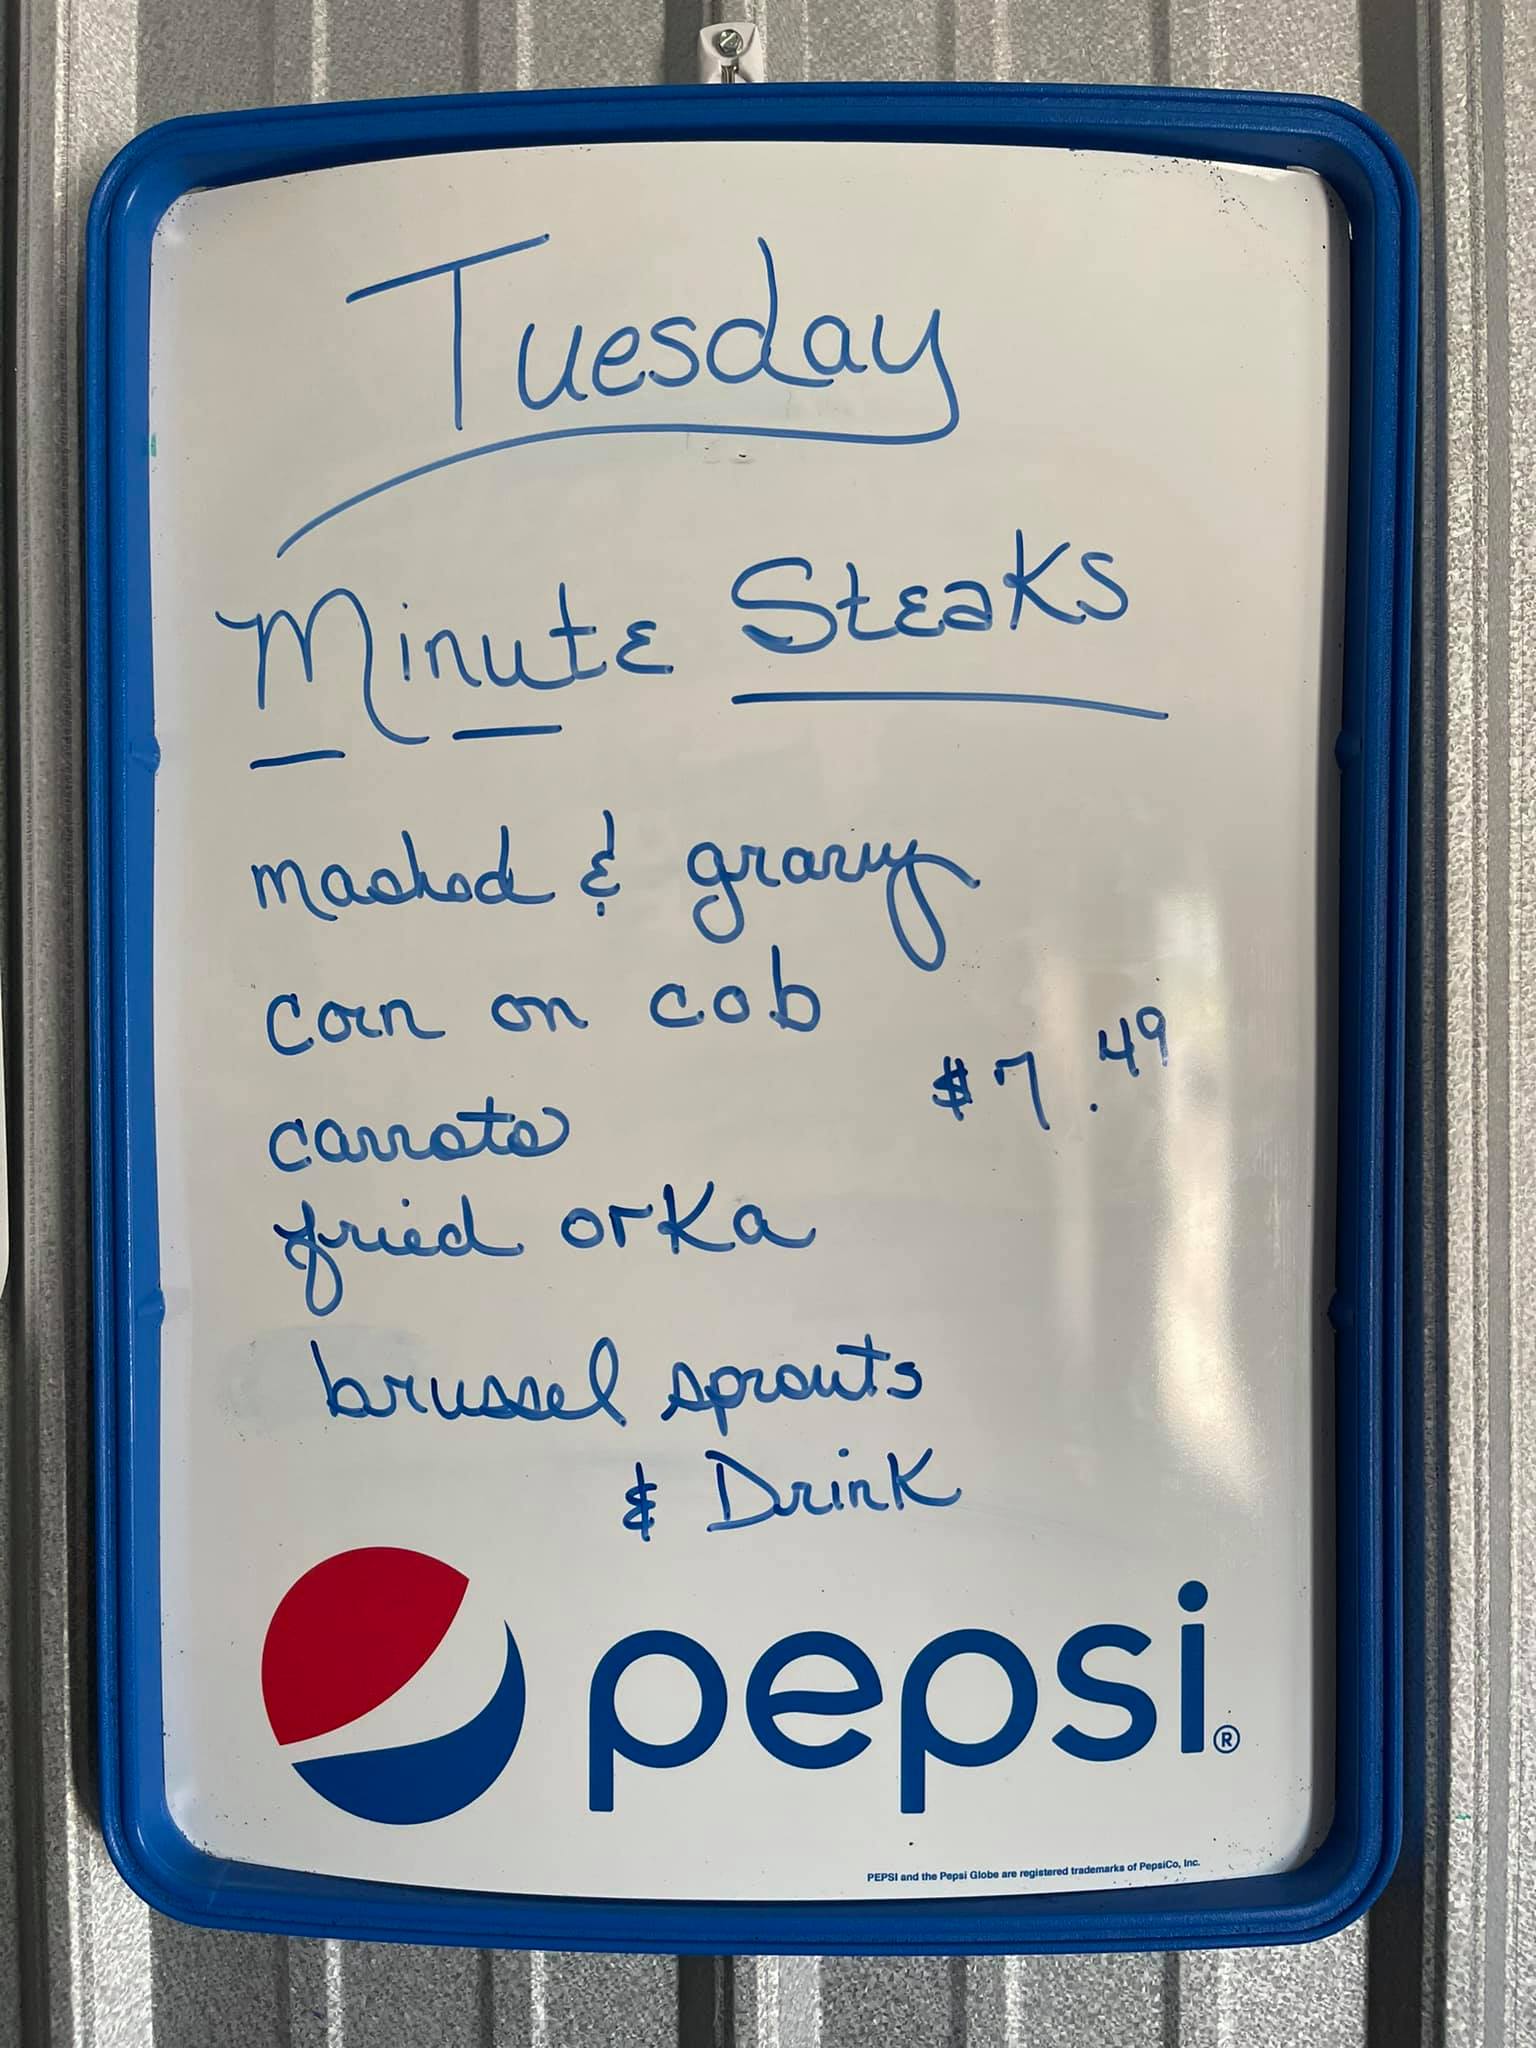 Tuesday
Minute Steaks
mashed & gravy
corn on cob
$7.49
carrots
fried orka
brussel sprouts
& Drink
pepsi®
PEPSI and the Pepsi Globe are registered trademarks of PepsiCo, Inc.